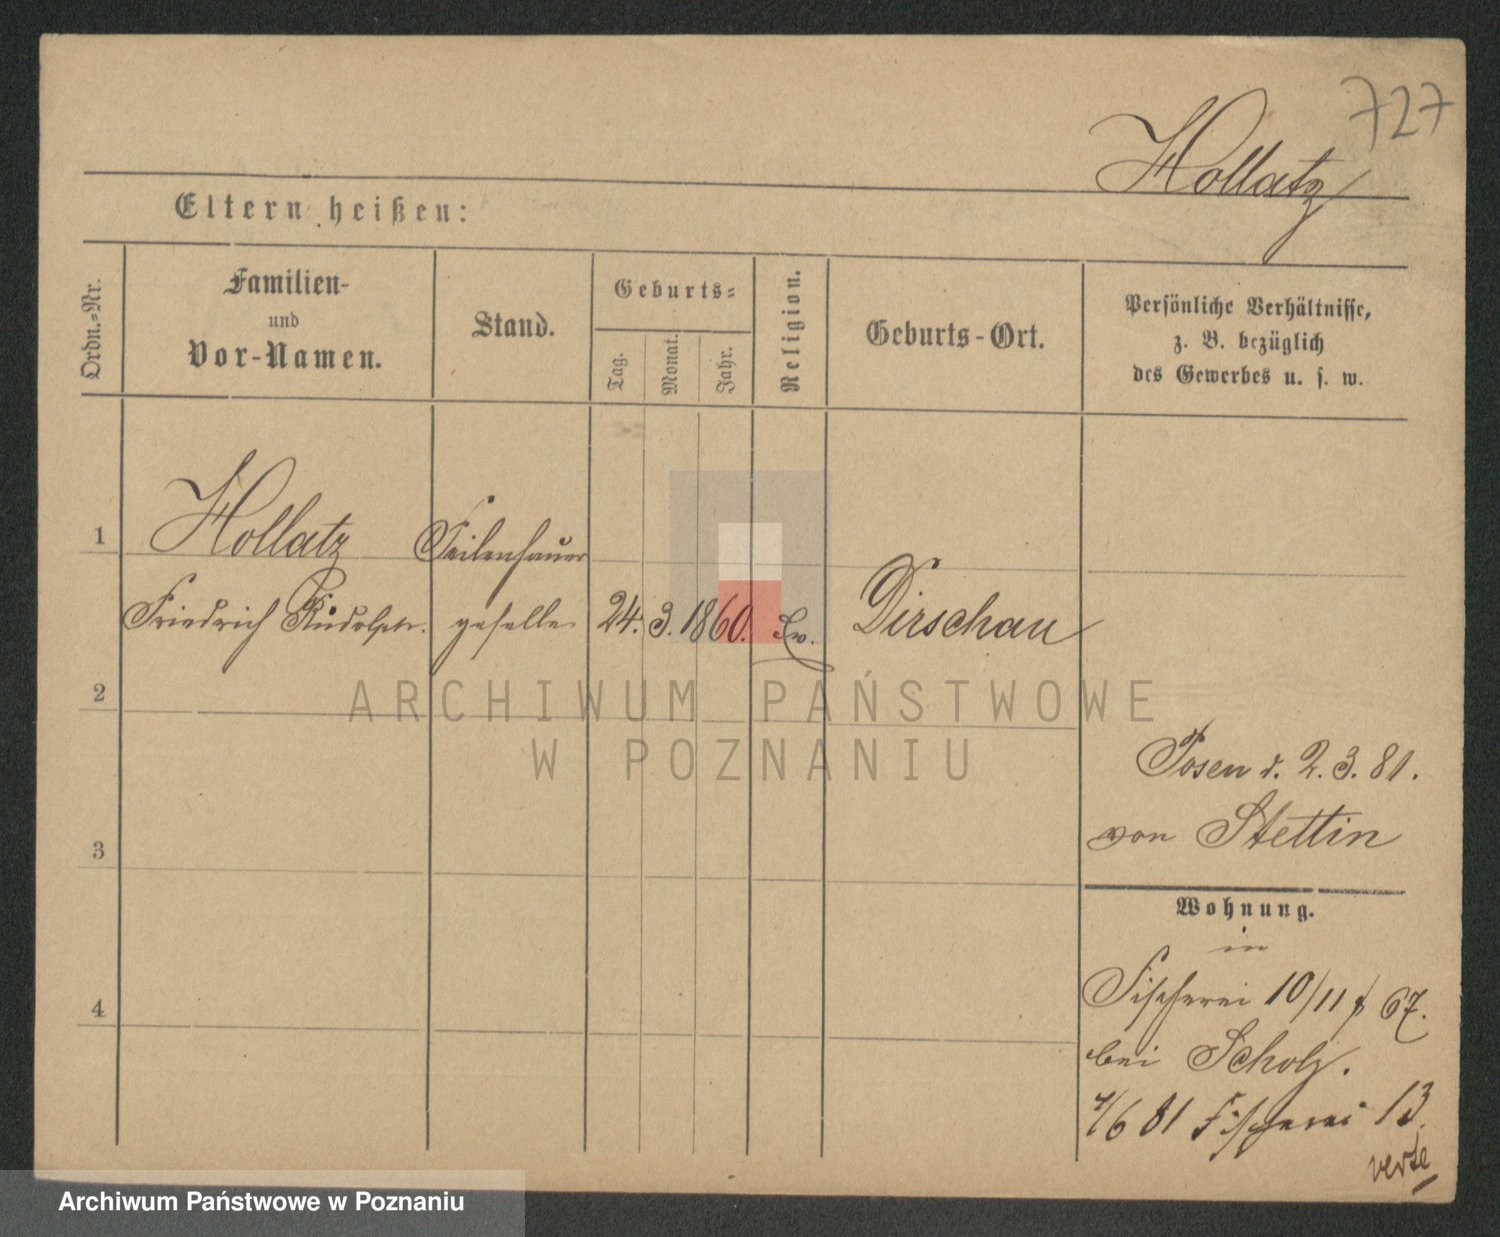 727
Hollatz
Eltern heißen:
Ordn.-Nr.
Familien-
und
Vor-Namen.
Stand.
Geburts-
Tag.
Monat.
Jahr.
Religion.
Geburts-Ort.
Persönliche Verhältnisse,
z. B. bezüglich
des Gewerbes u. s. w.
1
Hollatz Feilenhauer
Friedrich Rudolph. geselle 24. 3. 1860. Ev. Dirschau
2
ARCHIWUM PAŃSTWOWE
W POZNANIU
Posen d. 2. 3. 81.
von Stettin
3
Wohnung.
in
Fischerei 10/11 67.
bei Scholz.
4
1/6 81 Fischerei 13.
verte
Archiwum Państwowe w Poznaniu